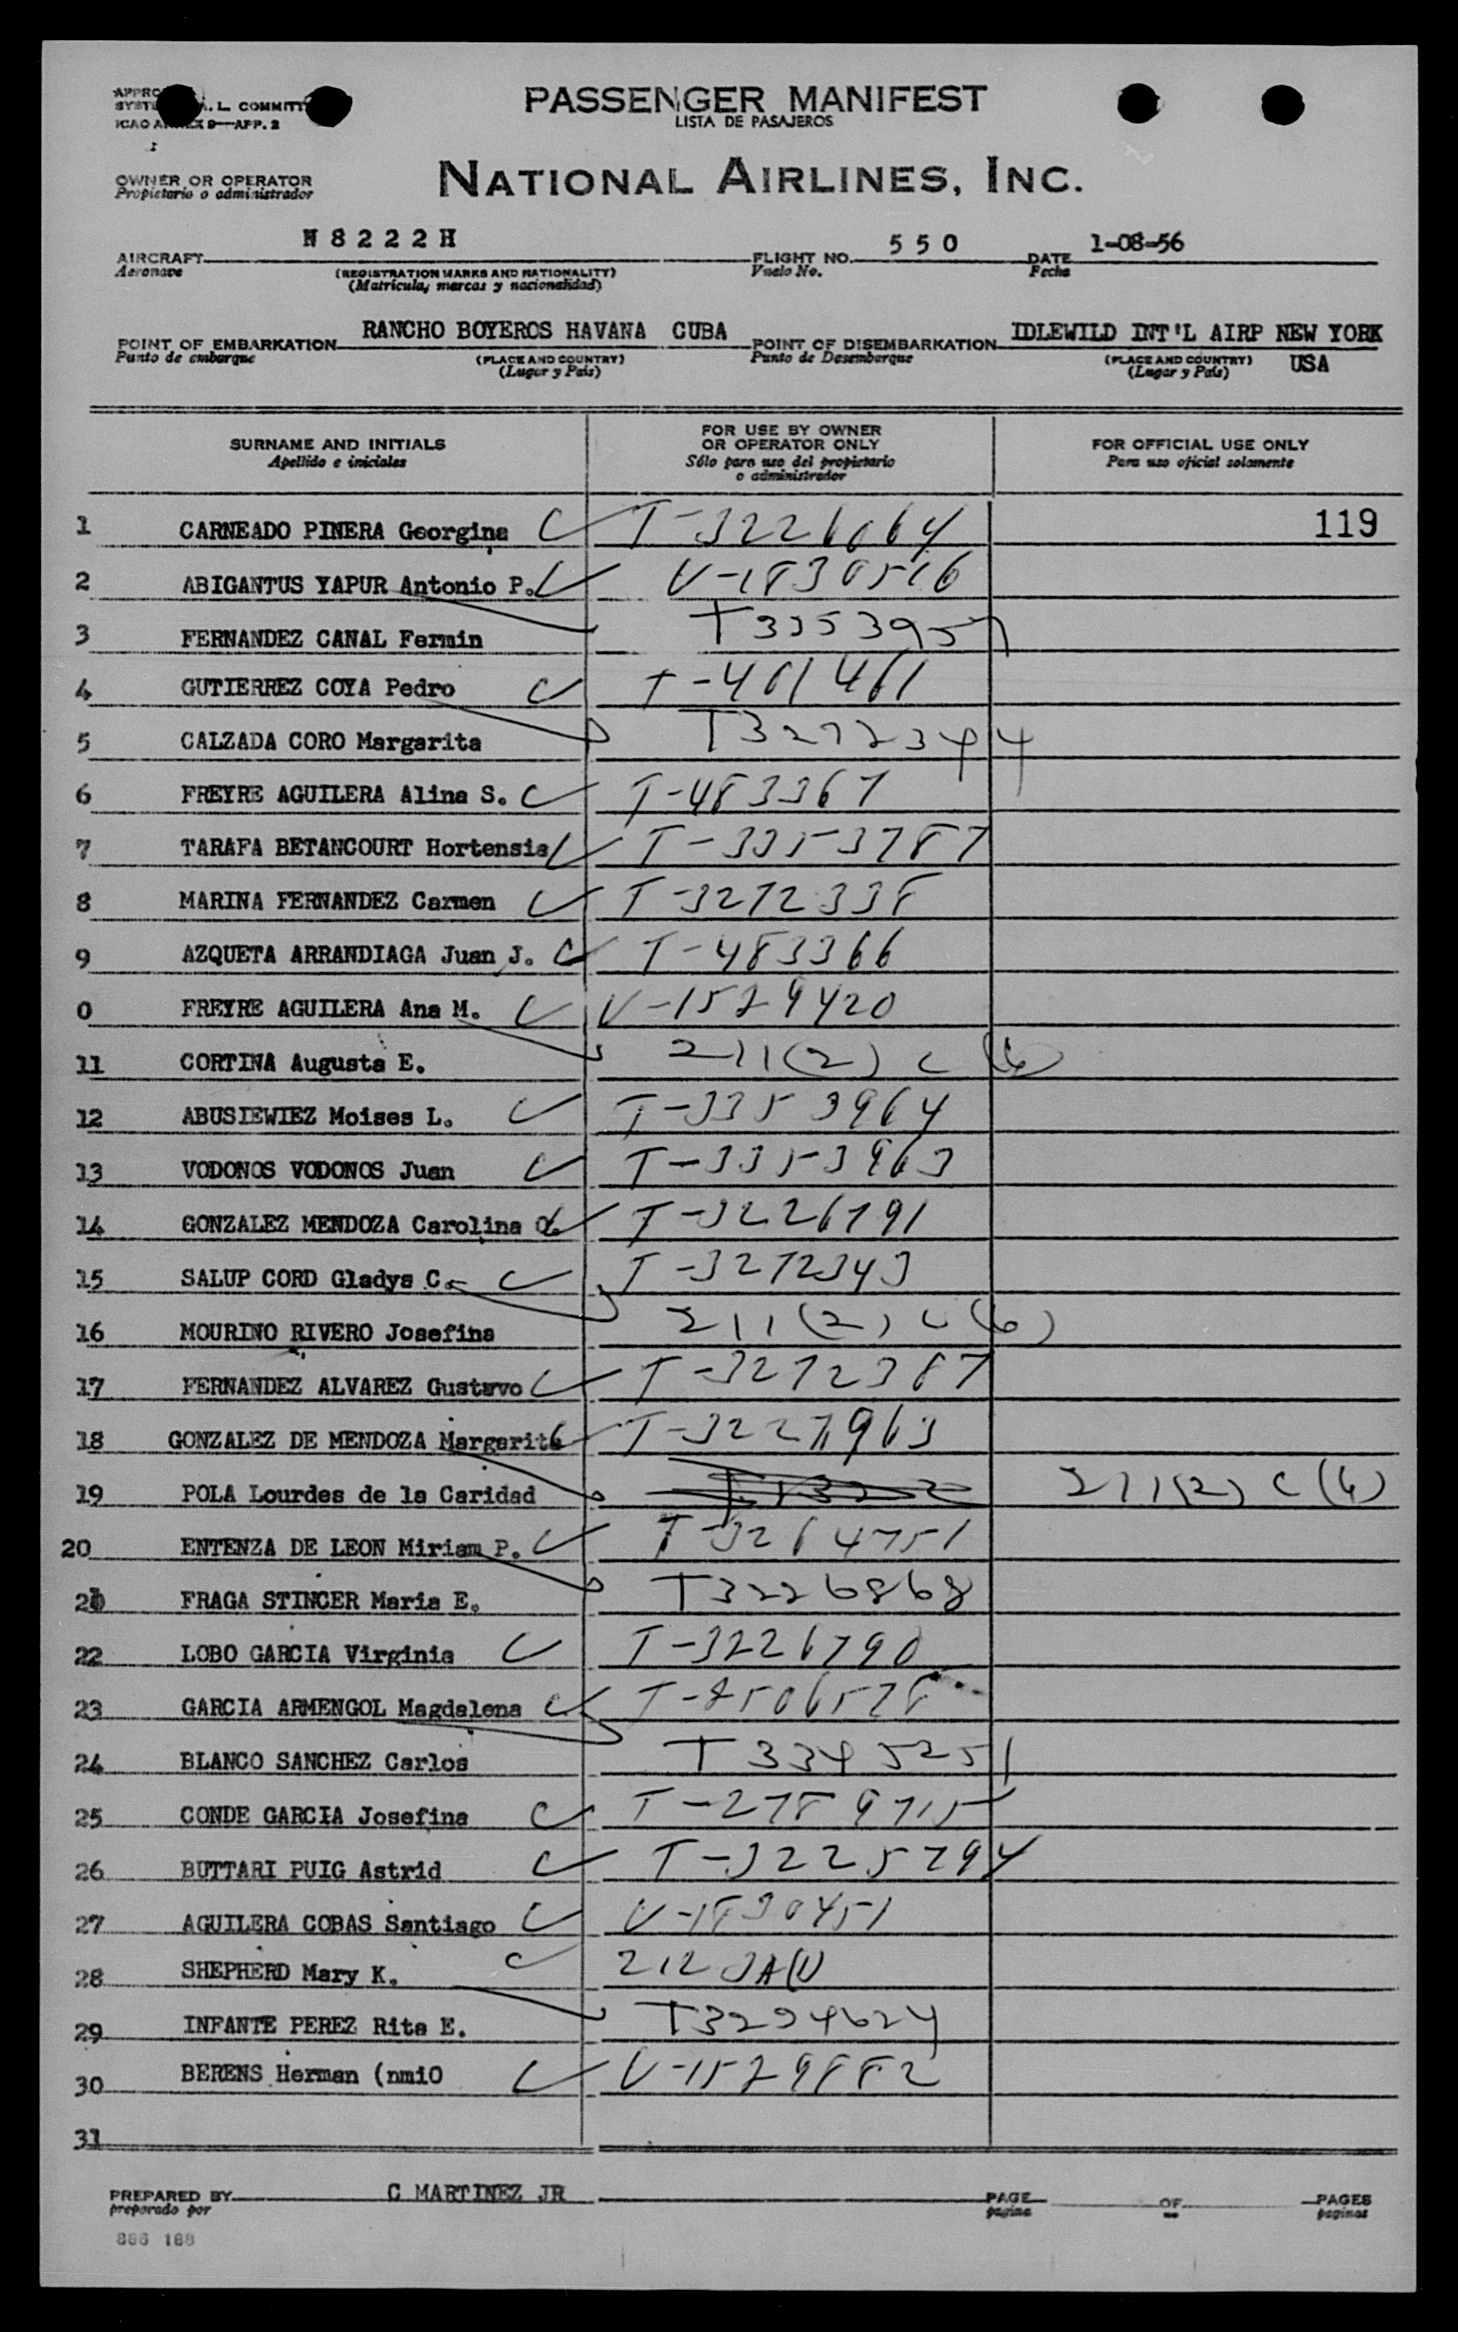 PASSENGER MANIFEST
LISTA DE PASAJEROS
A. L. COMMITT
9—APP. 2
NATIONAL AIRLINES, INC.
OWNER OR OPERATOR
Propietario o administrador
N8222H 550 1-08-56
AIRCRAFT FLIGHT NO. DATE
Aeronave (REGISTRATION MARKS AND NATIONALITY) Vuelo No. Fecha
(Matricula, marcas y nacionalidad)
RANCHO BOYEROS HAVANA CUBA IDLEWILD INT'L AIRP NEW YORK
POINT OF EMBARKATION POINT OF DISEMBARKATION
Punto de embarque (PLACE AND COUNTRY) Punto de Desembarque (PLACE AND COUNTRY) USA
(Lugar y País) (Lugar y País)
SURNAME AND INITIALS
Apellido e iniciales
FOR USE BY OWNER
OR OPERATOR ONLY
Sólo para uso del propietario
o administrador
FOR OFFICIAL USE ONLY
Para uso oficial solamente
1 CARNEADO PINERA Georgina T-3226064 119
2 ABIGANTUS YAPUR Antonio P. V-1830516
3 FERNANDEZ CANAL Fermin T3353957
4 GUTIERREZ COYA Pedro T-461461
5 CALZADA CORO Margarita T3272344
6 FREYRE AGUILERA Alina S. T-483367
7 TARAFA BETANCOURT Hortensia T-3353787
8 MARINA FERNANDEZ Carmen T-3272338
9 AZQUETA ARRANDIAGA Juan J. T-483366
0 FREYRE AGUILERA Ana M. V-1529420
11 CORTINA Augusta E. 211(2) C (6)
12 ABUSIEWIEZ Moises L. T-3353964
13 VODONOS VODONOS Juan T-3353963
14 GONZALEZ MENDOZA Carolina T-3226791
15 SALUP CORD Gladys C. T-3272343
16 MOURINO RIVERO Josefina 211(2) C (6)
17 FERNANDEZ ALVAREZ Gustavo T-3272387
18 GONZALEZ DE MENDOZA Margarita T-3227963
19 POLA Lourdes de la Caridad 211(2) C (6)
20 ENTENZA DE LEON Miriam P. T-3264751
21 FRAGA STINCER Maria E. T3226868
22 LOBO GARCIA Virginia T-3226790
23 GARCIA ARMENGOL Magdalena
24 BLANCO SANCHEZ Carlos T3345251
25 CONDE GARCIA Josefina T-2789715
26 BUTTARI PUIG Astrid T-3225794
27 AGUILERA COBAS Santiago V-1830451
28 SHEPHERD Mary K. 212
29 INFANTE PEREZ Rita E. T3224624
30 BERENS Herman (nmi0 V-1529882
31
PREPARED BY C MARTINEZ JR PAGE OF PAGES
preparado por página páginas
886 188